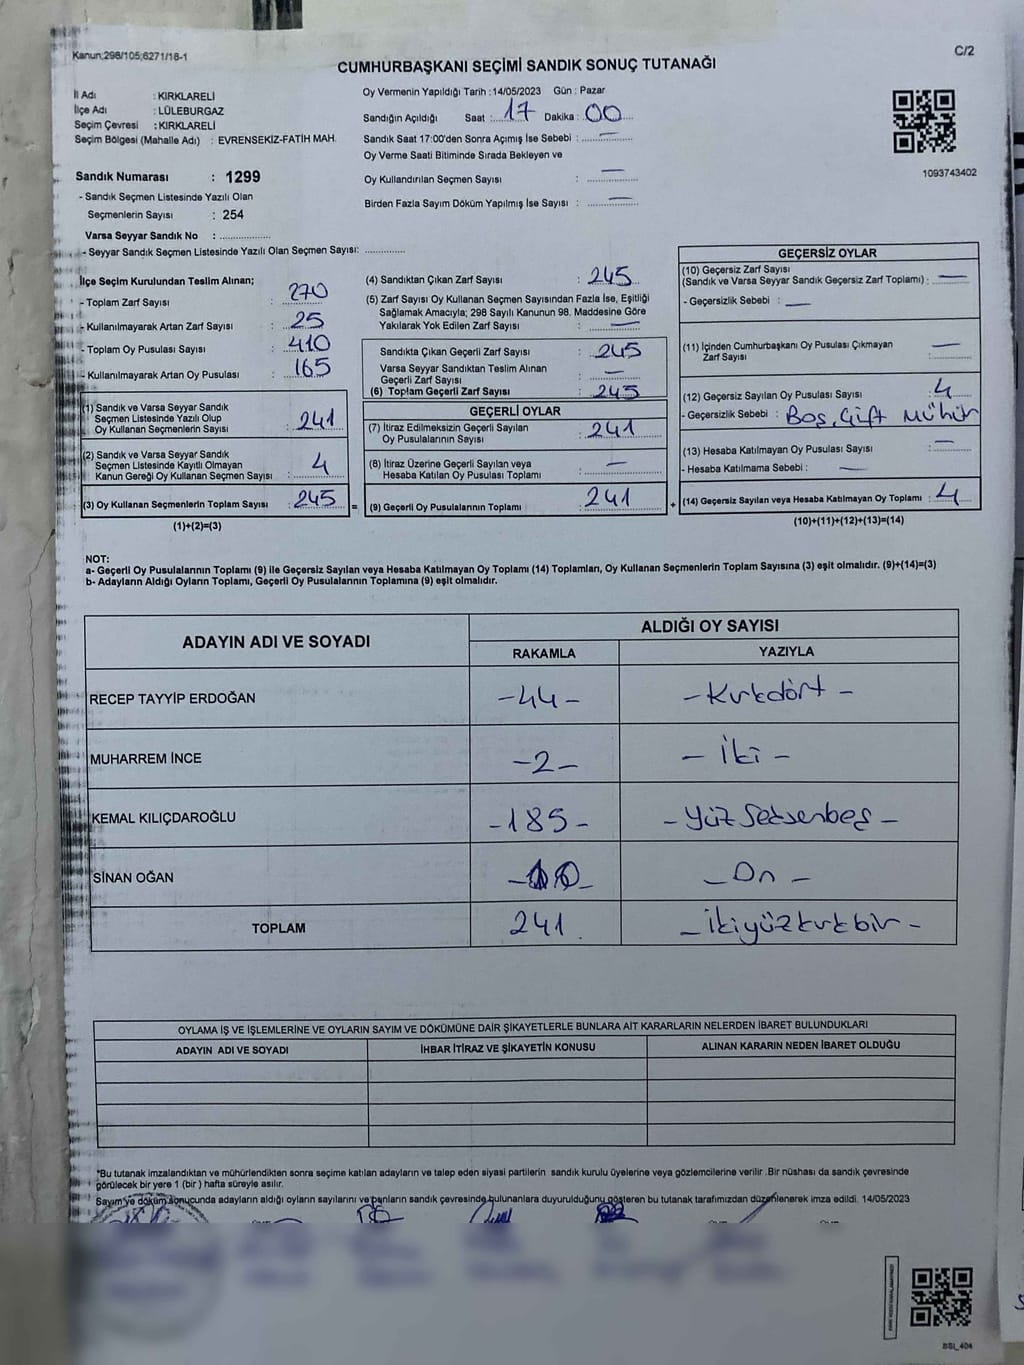 Kanun;298/105;6271/18-1
C/2
CUMHURBAŞKANI SEÇİMİ SANDIK SONUÇ TUTANAĞI
İl Adı : KIRKLARELİ
İlçe Adı : LÜLEBURGAZ
Seçim Çevresi : KIRKLARELİ
Seçim Bölgesi (Mahalle Adı) : EVRENSEKİZ-FATİH MAH.
Sandık Numarası : 1299
- Sandık Seçmen Listesinde Yazılı Olan
Seçmenlerin Sayısı : 254
Varsa Seyyar Sandık No : ................
- Seyyar Sandık Seçmen Listesinde Yazılı Olan Seçmen Sayısı: .............
Oy Vermenin Yapıldığı Tarih :14/05/2023 Gün : Pazar
Sandığın Açıldığı Saat : 17 Dakika : 00
Sandık Saat 17:00'den Sonra Açımış İse Sebebi : —
Oy Verme Saati Bitiminde Sırada Bekleyen ve
Oy Kullandırılan Seçmen Sayısı : —
Birden Fazla Sayım Döküm Yapılmış İse Sayısı : —
1093743402
İlçe Seçim Kurulundan Teslim Alınan;
- Toplam Zarf Sayısı : 270
- Kullanılmayarak Artan Zarf Sayısı : 25
- Toplam Oy Pusulası Sayısı : 410
- Kullanılmayarak Artan Oy Pusulası : 165
(1) Sandık ve Varsa Seyyar Sandık
Seçmen Listesinde Yazılı Olup
Oy Kullanan Seçmenlerin Sayısı : 241
(2) Sandık ve Varsa Seyyar Sandık
Seçmen Listesinde Kayıtlı Olmayan
Kanun Gereği Oy Kullanan Seçmen Sayısı : 4
(3) Oy Kullanan Seçmenlerin Toplam Sayısı : 245 =
(1)+(2)=(3)
(4) Sandıktan Çıkan Zarf Sayısı : 245
(5) Zarf Sayısı Oy Kullanan Seçmen Sayısından Fazla İse, Eşitliği
Sağlamak Amacıyla; 298 Sayılı Kanunun 98. Maddesine Göre
Yakılarak Yok Edilen Zarf Sayısı : —
Sandıkta Çıkan Geçerli Zarf Sayısı : 245
Varsa Seyyar Sandıktan Teslim Alınan
Geçerli Zarf Sayısı : —
(6) Toplam Geçerli Zarf Sayısı : 245
GEÇERLİ OYLAR
(7) İtiraz Edilmeksizin Geçerli Sayılan
Oy Pusulalarının Sayısı : 241
(8) İtiraz Üzerine Geçerli Sayılan veya
Hesaba Katılan Oy Pusulası Toplamı : —
(9) Geçerli Oy Pusulalarının Toplamı : 241 +
GEÇERSİZ OYLAR
(10) Geçersiz Zarf Sayısı
(Sandık ve Varsa Seyyar Sandık Geçersiz Zarf Toplamı) : —
- Geçersizlik Sebebi : —
(11) İçinden Cumhurbaşkanı Oy Pusulası Çıkmayan
Zarf Sayısı : —
(12) Geçersiz Sayılan Oy Pusulası Sayısı : 4
- Geçersizlik Sebebi : Boş, Çift Mühür
(13) Hesaba Katılmayan Oy Pusulası Sayısı : —
- Hesaba Katılmama Sebebi : —
(14) Geçersiz Sayılan veya Hesaba Katılmayan Oy Toplamı : 4
(10)+(11)+(12)+(13)=(14)
NOT:
a- Geçerli Oy Pusulalarının Toplamı (9) ile Geçersiz Sayılan veya Hesaba Katılmayan Oy Toplamı (14) Toplamları, Oy Kullanan Seçmenlerin Toplam Sayısına (3) eşit olmalıdır. (9)+(14)=(3)
b- Adayların Aldığı Oyların Toplamı, Geçerli Oy Pusulalarının Toplamına (9) eşit olmalıdır.
ADAYIN ADI VE SOYADI ALDIĞI OY SAYISI
RAKAMLA YAZIYLA
RECEP TAYYİP ERDOĞAN -44- -Kırkdört-
MUHARREM İNCE -2- -İki-
KEMAL KILIÇDAROĞLU -185- -Yüz Seksenbeş-
SİNAN OĞAN -10- -On-
TOPLAM 241 -İkiyüzkırkbir-
OYLAMA İŞ VE İŞLEMLERİNE VE OYLARIN SAYIM VE DÖKÜMÜNE DAİR ŞİKAYETLERLE BUNLARA AİT KARARLARIN NELERDEN İBARET BULUNDUKLARI
ADAYIN ADI VE SOYADI İHBAR İTİRAZ VE ŞİKAYETİN KONUSU ALINAN KARARIN NEDEN İBARET OLDUĞU
*Bu tutanak imzalandıktan ve mühürlendikten sonra seçime katılan adayların ve talep eden siyasi partilerin sandık kurulu üyelerine veya gözlemcilerine verilir .Bir nüshası da sandık çevresinde
görülecek bir yere 1 (bir ) hafta süreyle asılır.
Sayım ve döküm sonucunda adayların aldığı oyların sayılarını ve bunların sandık çevresinde bulunanlara duyurulduğunu gösteren bu tutanak tarafımızdan düzenlenerek imza edildi. 14/05/2023
BSI_404